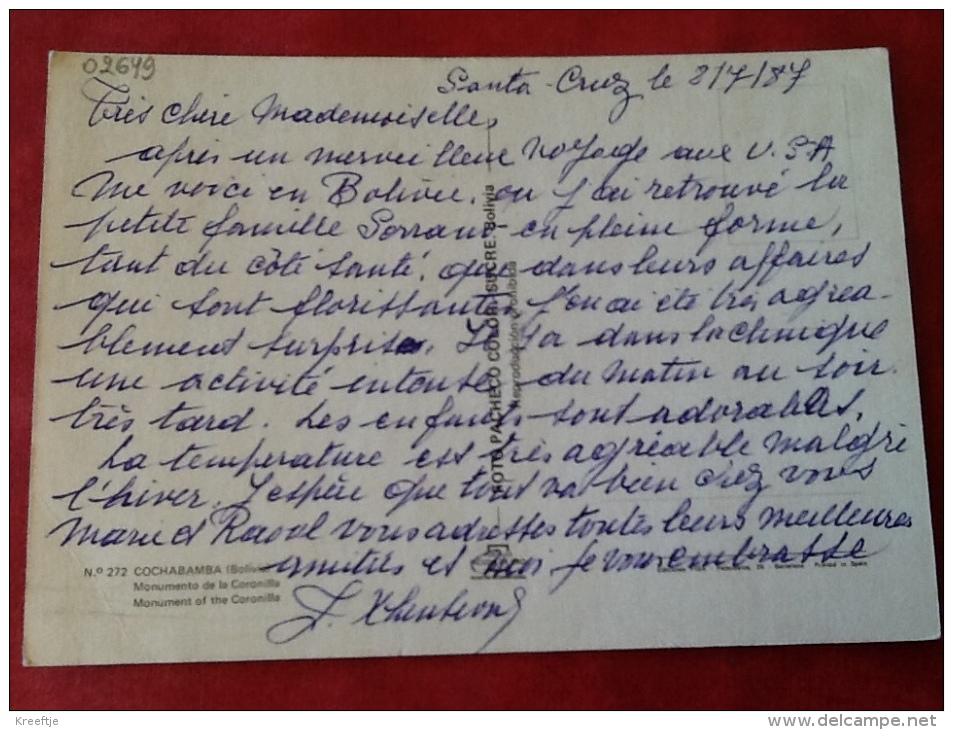 02649
Santa-Cruz le 8/7/87
Très chère Mademoiselle,
après un merveilleux voyage aux U.S.A
me voici en Bolivie. ou j'ai retrouvé la
petite famille en pleine forme,
tant du côté santé, que dans leurs affaires
qui sont florissantes, J'en ai été très agréa-
blement surprise. Il y a dans la clinique
une activité intense, du matin au soir
très tard. Les enfants sont adorables.
La température est très agréable malgré
l'hiver. J'espère que tout va bien chez vous
Marie et Raoul vous adresses toutes leurs meilleures
amitiés et moi je vous embrasse
FOTO PACHECO COLOR. SUCRE. Bolivia
Reproducción prohibida
N.º 272 COCHABAMBA (Bolivia)
Monumento de la Coronilla
Monument of the Coronilla
Printed in Spain
Kreeftje
www.delcampe.net